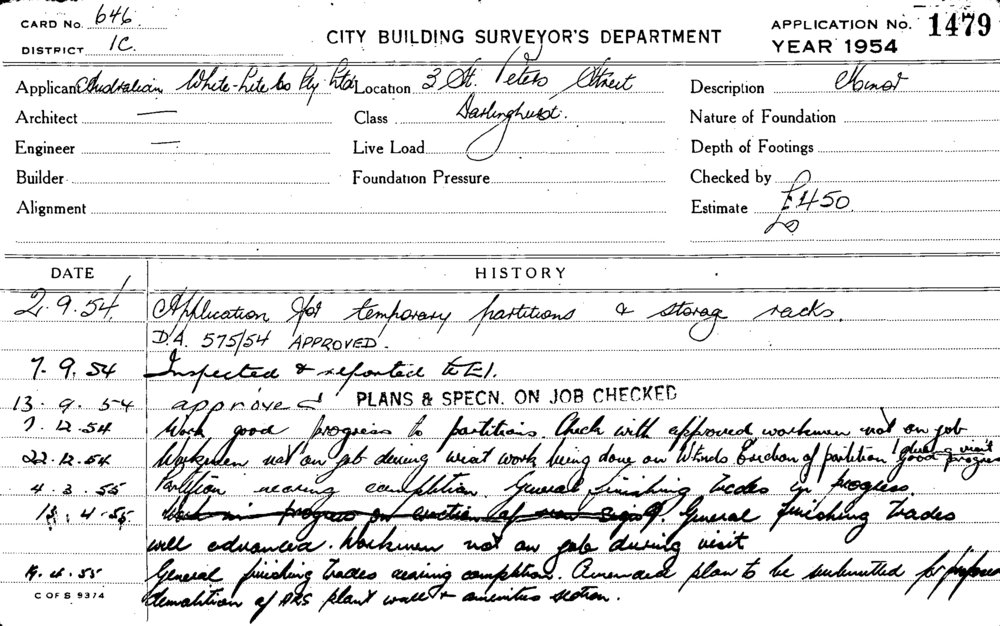 CARD No. 646
DISTRICT 1C.
CITY BUILDING SURVEYOR'S DEPARTMENT
APPLICATION No. 1479
YEAR 1954
Applicant Australian White-Lite Co Pty Ltd Location 3 St. Peters Street Description Minor
Architect — Class Darlinghurst. Nature of Foundation
Engineer — Live Load Depth of Footings
Builder Foundation Pressure Checked by
Alignment Estimate £450
DATE HISTORY
2.9.54 Application for temporary partitions & storag racks.
D.A. 575/54 APPROVED.
7.9.54 Inspected & reported to
13.9.54 approved PLANS & SPECN. ON JOB CHECKED
7.12.54 Work good progress to partitions. Check with approved workmen not on job
22.12.54 Workmen not on job during visit work being done on Erection of partition good progress during visit
4.3.55 Partition nearing completion. General finishing trades in progress.
4.55 Work in progress on erection of General finishing trades
well advanced. Workmen not on job during visit
4.55 General finishing trades nearing completion. Amended plan to be submitted for
C OF S 9374 demolition of plant wall & amenities section.